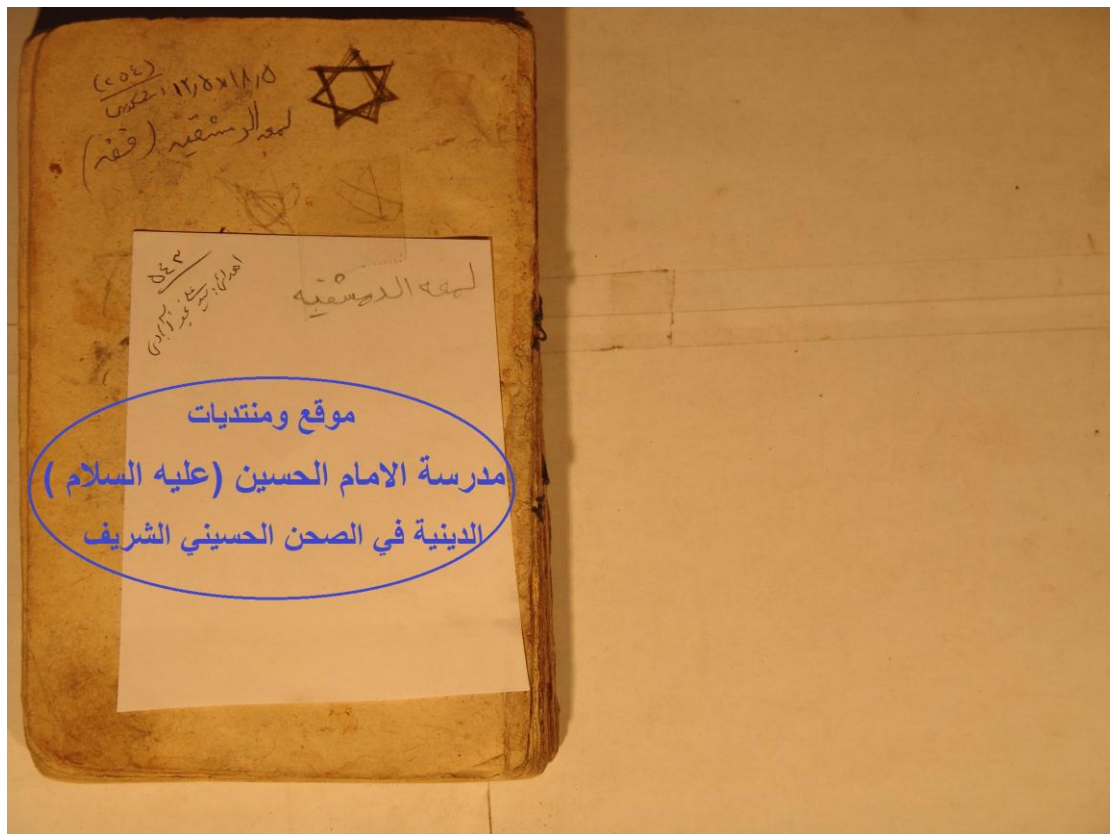 (٢٥٤)
١٢٫٥x١٨٫٥
لمعه الدمشقيه (فقه)
٥٤٣
لمعه الدمشقيه
موقع ومنتديات
مدرسة الامام الحسين (عليه السلام )
الدينية في الصحن الحسيني الشريف